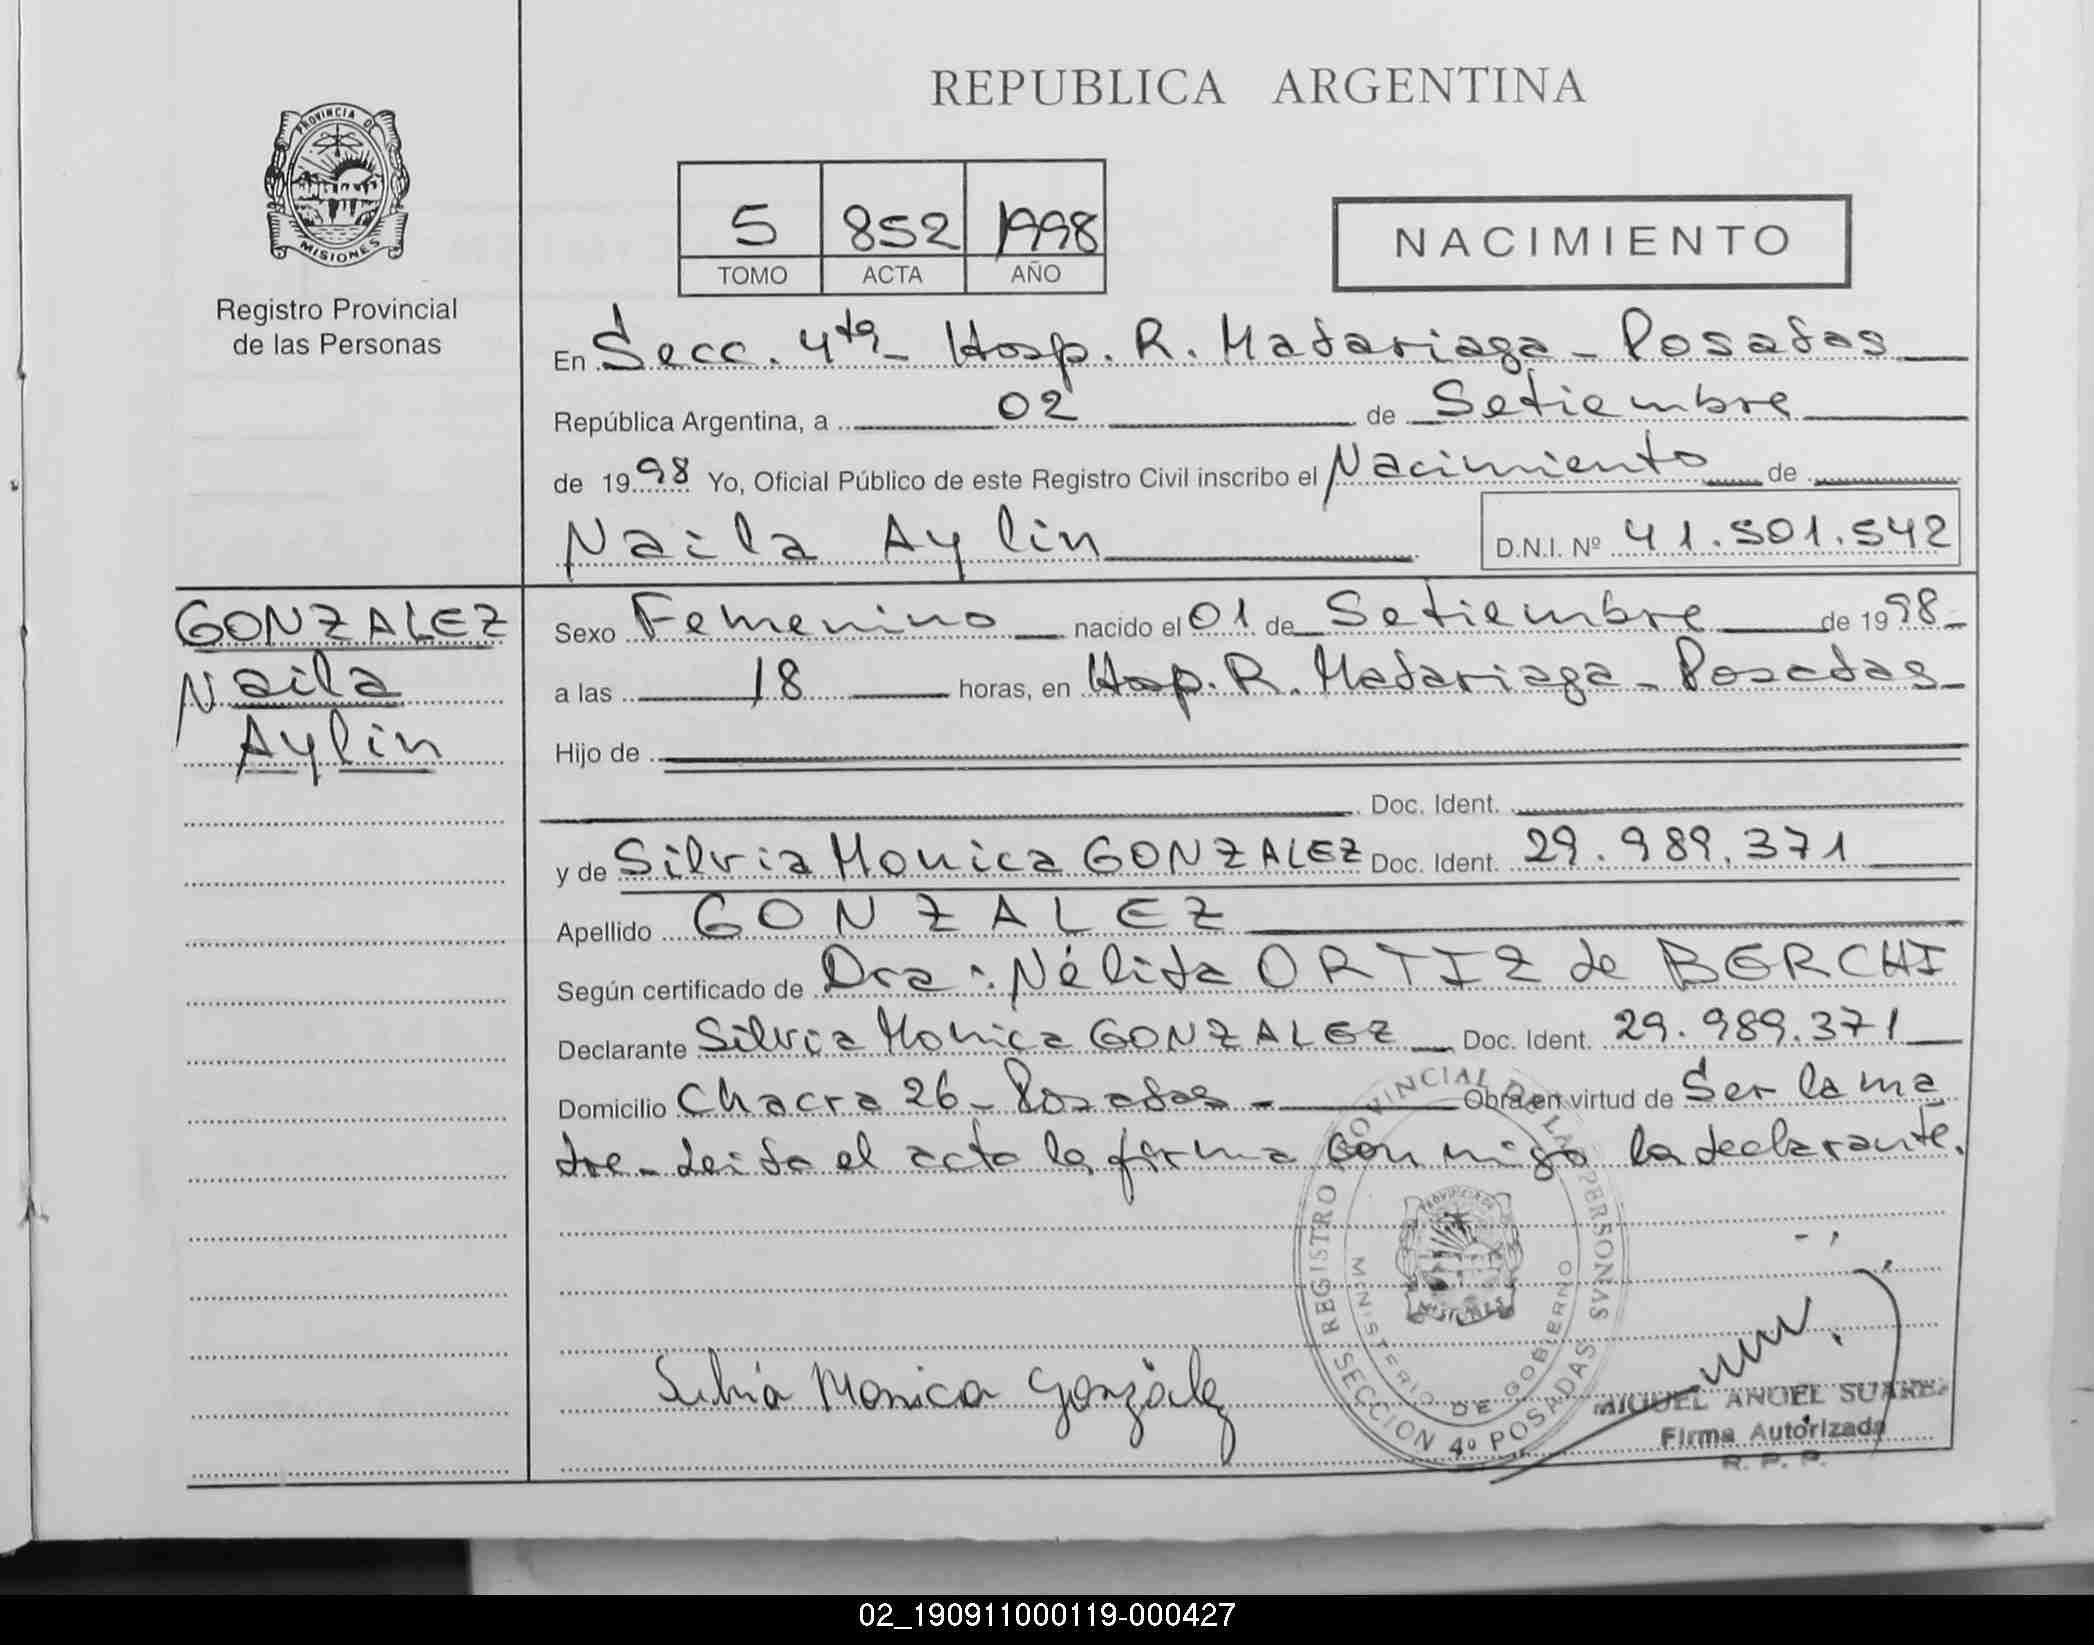 REPUBLICA ARGENTINA
PROVINCIA DE
MISIONES
Registro Provincial
de las Personas
5 852 1998
TOMO ACTA AÑO
NACIMIENTO
En Secc. 4ta - Hosp. R. Madariaga - Posadas
República Argentina, a 02 de Setiembre
de 1998 Yo, Oficial Público de este Registro Civil inscribo el Nacimiento de
Naila Aylin D.N.I. Nº 41.501.542
GONZALEZ
Naila
Aylin
Sexo Femenino nacido el 01 de Setiembre de 1998
a las 18 horas, en Hosp. R. Madariaga - Posadas
Hijo de
Doc. Ident.
y de Silvia Monica GONZALEZ Doc. Ident. 29.989.371
Apellido GONZALEZ
Según certificado de Dra: Nélida ORTIZ de BERCHI
Declarante Silvia Monica GONZALEZ Doc. Ident. 29.989.371
Domicilio Chacra 26 - Posadas - Obra en virtud de Ser la ma
dre - Leida el acta la firma con migo la declarante.
REGISTRO PROVINCIAL DE LAS PERSONAS
MINISTERIO DE GOBIERNO
SECCION 4º POSADAS
Silvia Monica González
MIGUEL ANGEL SUAREZ
Firma Autorizada
R. P. P.
02_190911000119-000427